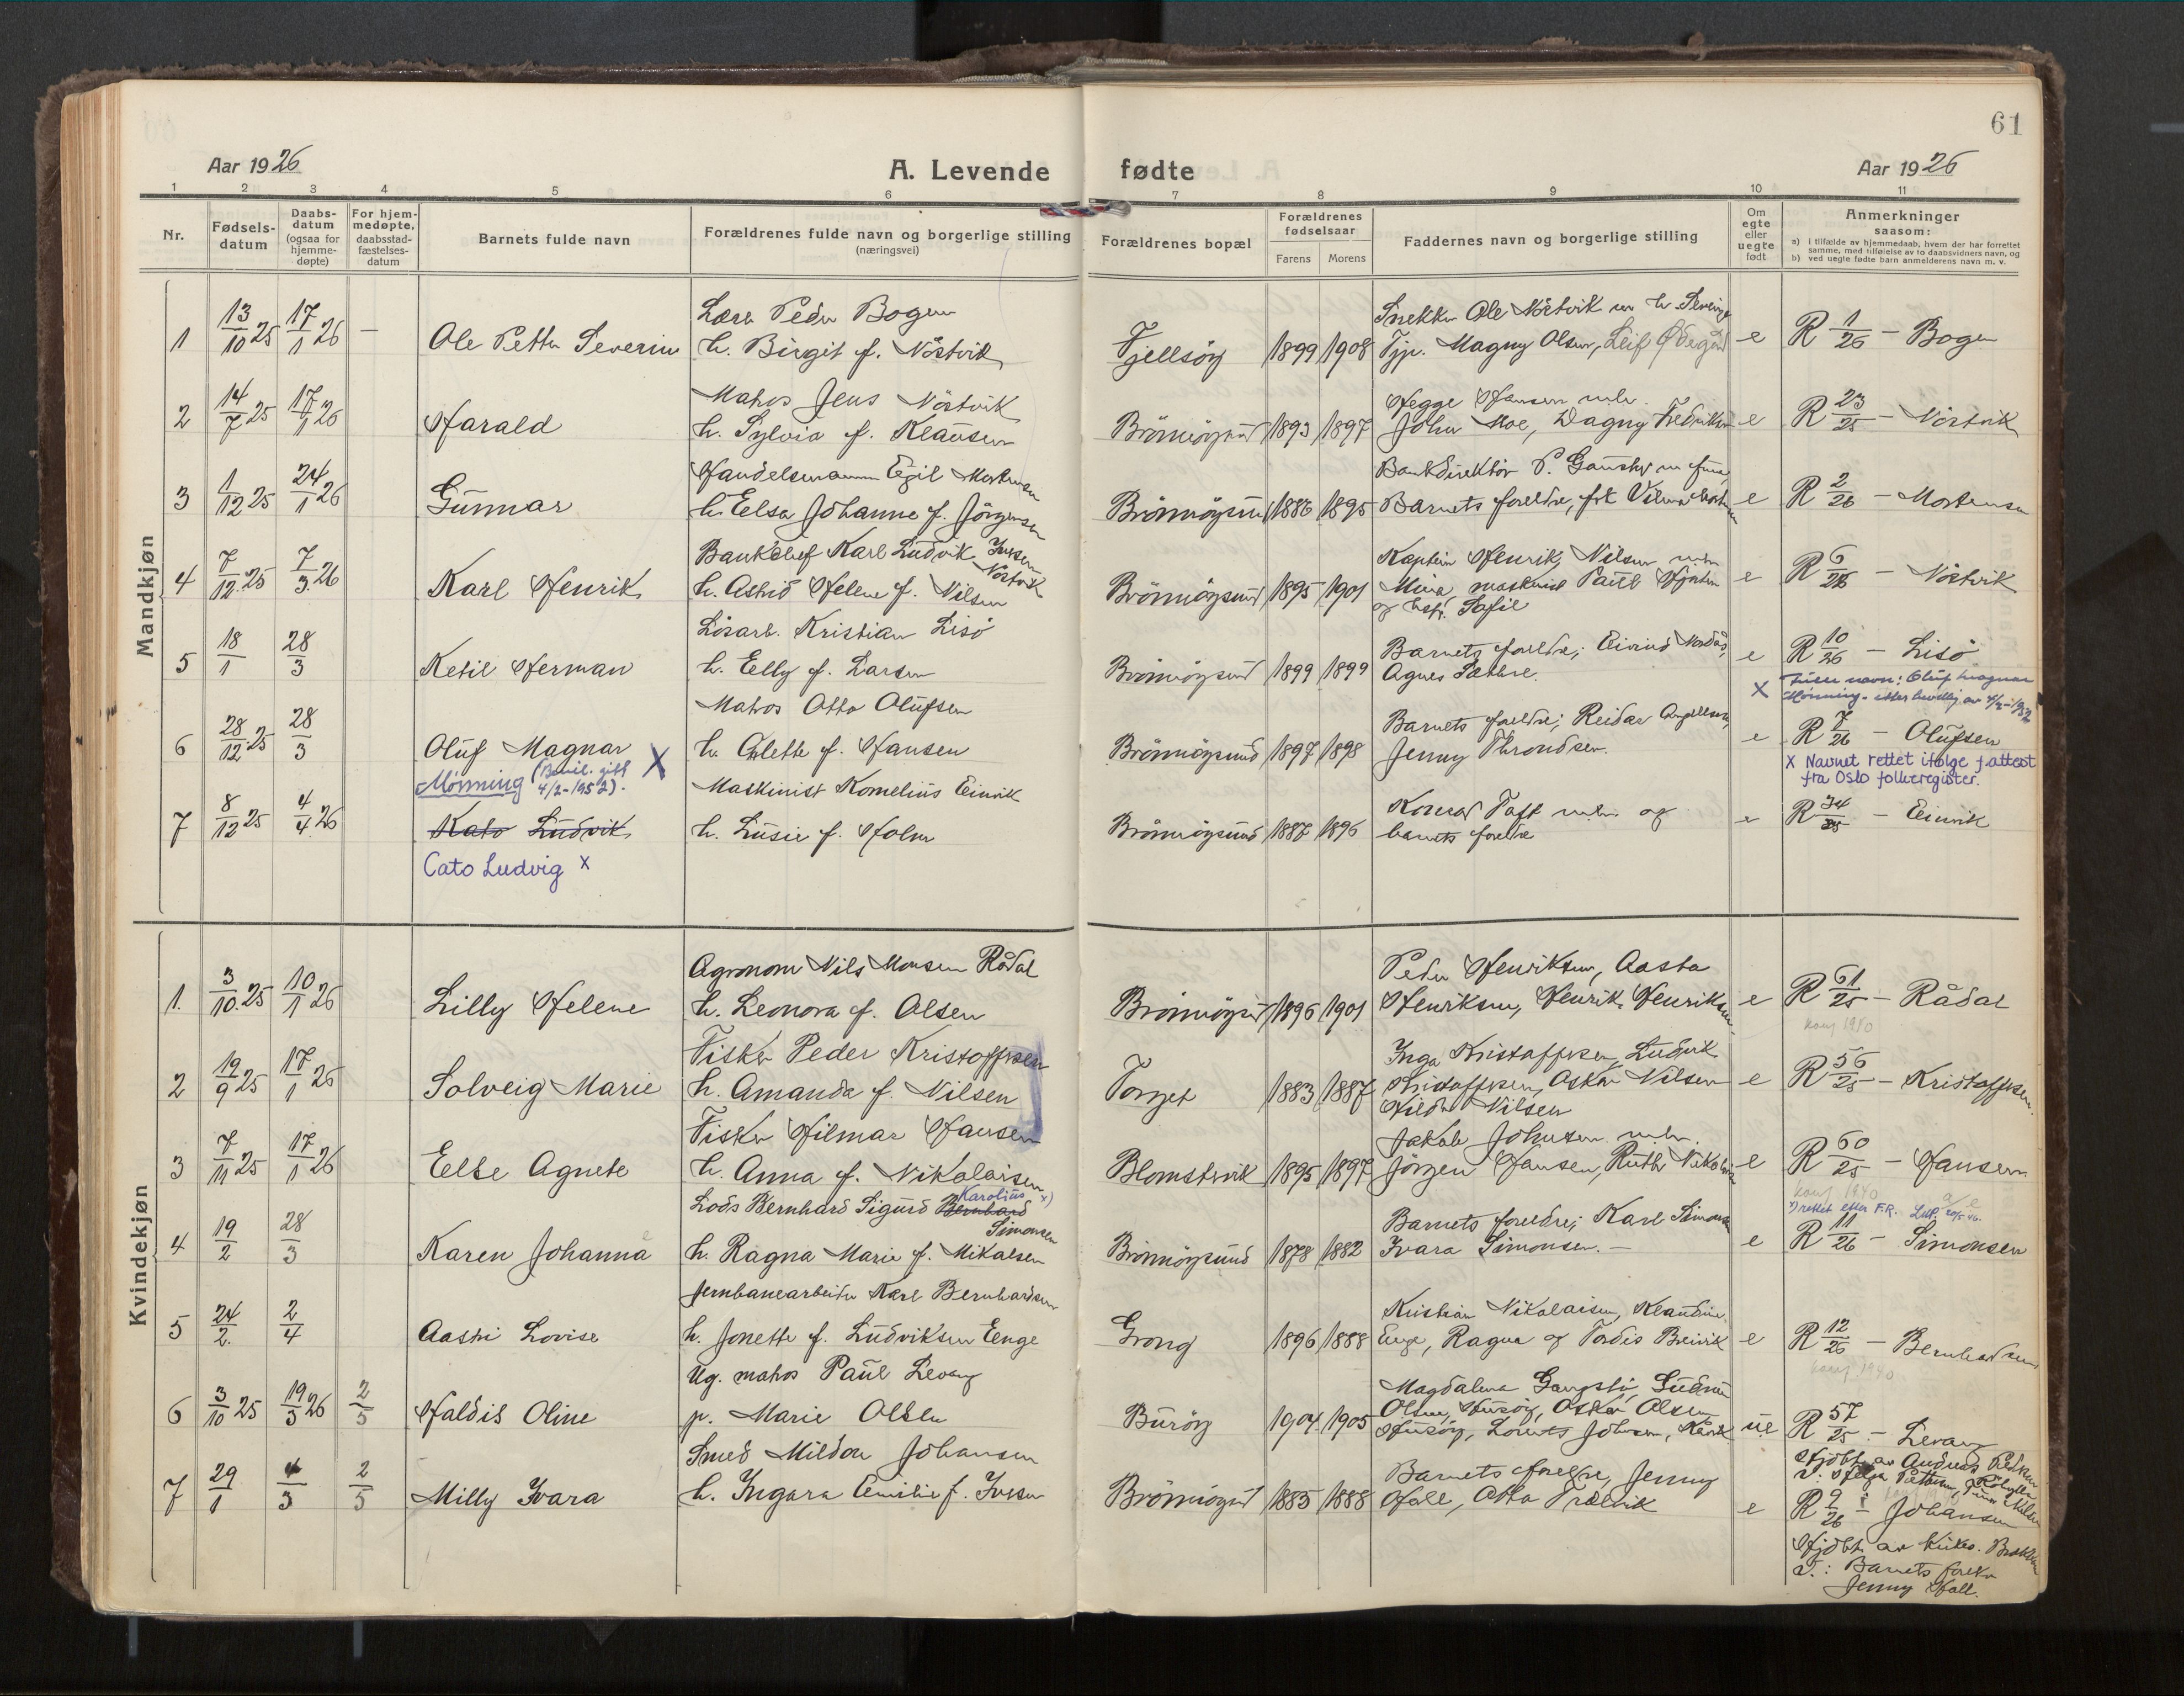 61
Aar 1926
A. Levende fødte
Aar 1926
1 2 3 4 5 6 7 8 9 10 11
Nr.
Fødsels-
datum
Daabs-
datum
(ogsaa for
hjemme-
døpte)
For hjem-
medøpte,
daabsstad-
fæstelses-
datum
Barnets fulde navn
Forældrenes fulde navn og borgerlige stilling
(næringsvei)
Forældrenes bopæl
Forældrenes
fødselsaar
Farens Morens
Faddernes navn og borgerlige stilling
Om
egte
eller
uegte
født
Anmerkninger
saasom:
a) i tilfælde av hjemmedaab, hvem der har forrettet
samme, med tilføielse av to daabsvidners navn, og
b) ved uegte fødte barn anmelderens navn m. v.
Mandkjøn
1 13/10 25 17/1 26 — Ole Petter Severin
Lærer Peder Bogen
h. Birgit f. Nöstvik
Fjellsöy 1899 1908
Snekker Ole Nöstvik
Tjp. Magny Olsen, Leif Ødegård
e R 1/26 — Bogen
2 14/7 25 17/1 26 Harald
Matros Jens Nöstvik
h. Sylvia f. Klausen
Brönnöysund 1893 1897
Hegge Hansen m.h.
John Moe, Dagny Fredriksen
e R 23/25 — Nöstvik
3 1/12 25 24/1 26 Gunnar
Handelsmann Egil Mortensen
h. Elsa Johanne f. Jörgensen
Brönnöysund 1886 1895
Bankdirektör P.
Barnets foreldre, frk
e R 2/26 — Mortensen
4 7/12 25 7/3 26 Karl Henrik
Bankchef Karl Ludvik Iversen
Nöstvik
h. Astrid Helene f. Nilsen
Brönnöysund 1895 1901
Kaptein Henrik Nilsen m.h.
Mina, maskinist Paul
og hustr. Sofie
e R 6/26 — Nöstvik
5 18/1 28/3 Ketil Herman
Lösarb. Kristian Lisö
h. Elly f. Larsen
Brönnöysund 1899 1899
Barnets foreldre; Eivind
Agnes Sæthre.
e R 10/26 — Lisö
X navn: Oluf Magnar
Mønning - etter bevillg av 4/2-1952
6 28/12 25 28/3 Oluf Magnar X
Mønning (Bevil. gitt
4/2-1952).
Matros Otto Olufsen
h. Arlette f. Hansen
Brönnöysund 1897 1898
Barnets foreldre; Reidar
Jenny Throndsen.
e R 7/26 — Olufsen
X Navnet rettet ifølge f.attest
fra Oslo folkeregister.
7 8/12 25 4/4 26 Kato Ludvik
Cato Ludvig x
Maskinist Kornelius Einvik
h. Lusie f. Holm
Brönnöysund 1887 1896
Konrad Toft m.h. og
barnets foreldre
e R 34/25 — Einvik
Kvindekjøn
1. 3/10 25 10/1 26 Lilly Helene
Agronom Nils Monsen Rådal
h. Leonora f. Olsen
Brönnöysund 1896 1901
Peder Henriksen, Aasta
Henriksen, Henrik Henriksen
e R 61/25 — Rådal
konf 1940
2 19/9 25 17/1 26 Solveig Marie
Fisker Peder Kristoffersen
h. Amanda f. Nilsen
Torget 1883 1887
Inga Kristoffersen, Ludvik
Kristoffersen, Oskar Nilsen
Hilda Nilsen
e R 56/25 — Kristoffersen.
3 7/11 25 17/1 26 Else Agnete
Fisker Hilmar Hansen
h. Anna f. Nikolaisen
Blomstervik 1895 1897
Jakob Johnsen m.h.
Jörgen Hansen, Ruth Nikolaisen
e R 60/25 — Hansen
konf 1940
4 19/2 28/3 Karen Johanna
Lods Bernhard Sigurd Bernhard Karolius x)
Simonsen
h. Ragna Marie f. Mikalsen
Brönnöysund 1878 1882
Barnets foreldre; Karl Simonsen
Ivara Simonsen. —
x) rettet efter F.R.
e R 11/26 — Simonsen
5 24/2. 2/4 Aasta Lovise
Jernbanearbeider Karl Bernhardsen
h. Jonette f. Ludviksen Enge
Grong 1896 1888
Kristian Nikolaisen, Klaudine
Enge, Ragna og Tordis Breivik
e R 12/26 — Bernhardsen
konf 1940
6 3/10 25 19/3 26 2/5 Haldis Oline
Ug. matros Paul Levang
p. Marie Olsen
Buröy 1904 1905
Magdalena
Olsen, Husöy, Oskar Olsen
Husöy,
ue R 57/25 — Levang
Hjdbt av Andreas
7 29/1 4/3 2/5 Milly Ivara
Smed Mildor Johansen
h. Ingara Emilie f. Iversen
Brönnöysund 1885 1888
Barnets foreldre, Jenny
Hall, Otto Trælvik
e R 9/26 — Johansen
Hjdbt. av
T.: Barnets foreldre
Jenny Hall.